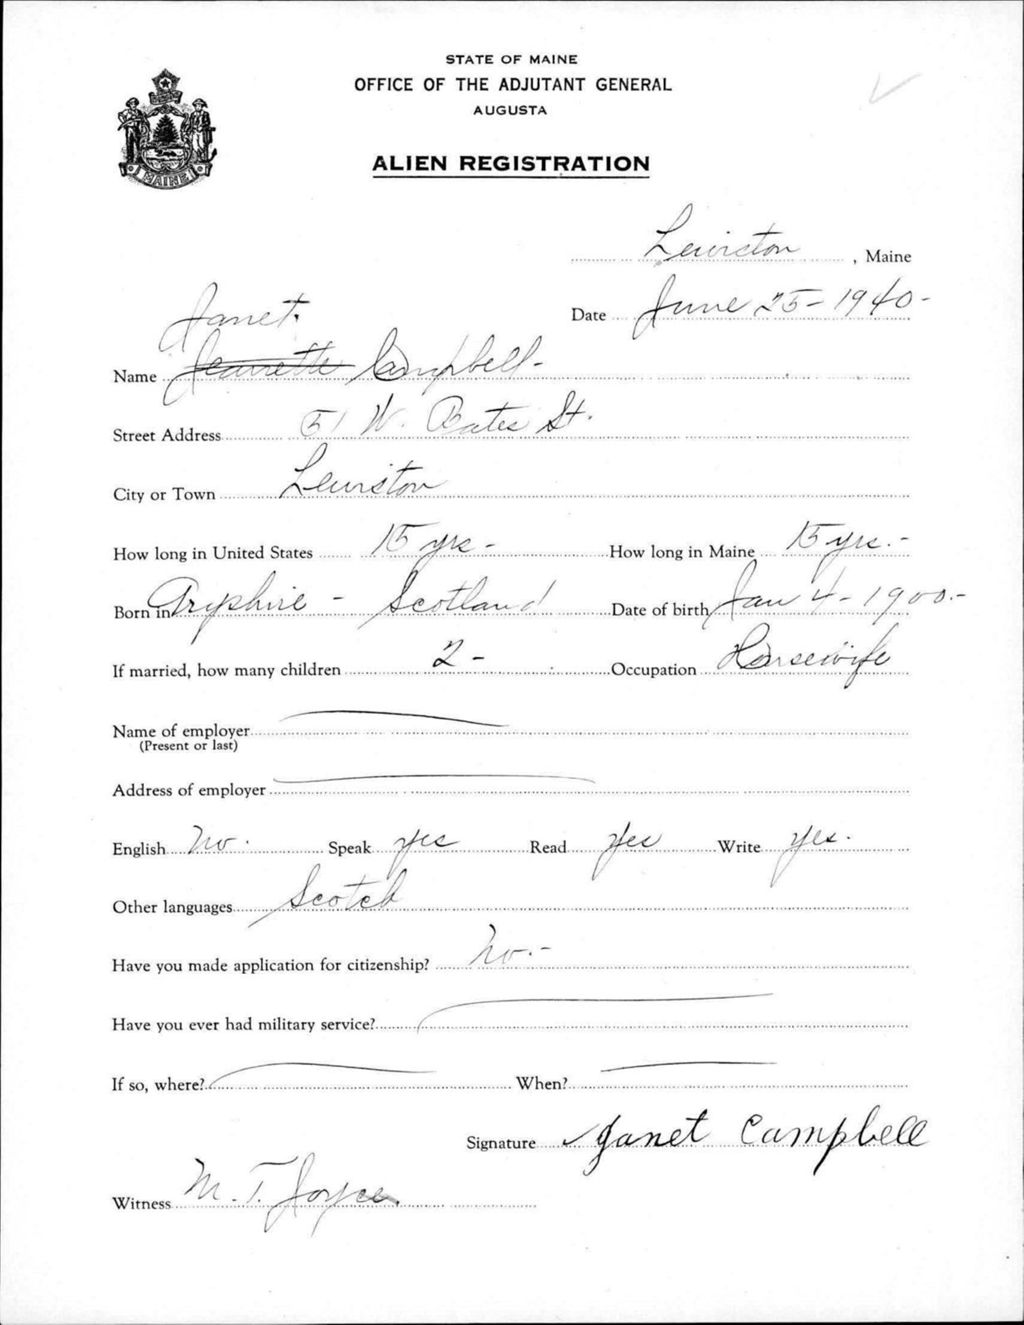 STATE OF MAINE
OFFICE OF THE ADJUTANT GENERAL
AUGUSTA
MAINE
ALIEN REGISTRATION
Lewiston, Maine
Date June 25-1940-
Janet
Name Jeannette Campbell-
Street Address 51 W. Bates St.
City or Town Lewiston
How long in United States 15 yrs - How long in Maine 15 yrs. -
Born in Aryshire - Scotland Date of birth Jan 4-1900.-
If married, how many children 2- Occupation Housewife
Name of employer
(Present or last)
Address of employer
English No. Speak yes Read Yes Write Yes.
Other languages Scotch
Have you made application for citizenship? No.-
Have you ever had military service?
If so, where? When?
Signature Janet Campbell
Witness M. T. Joyce.